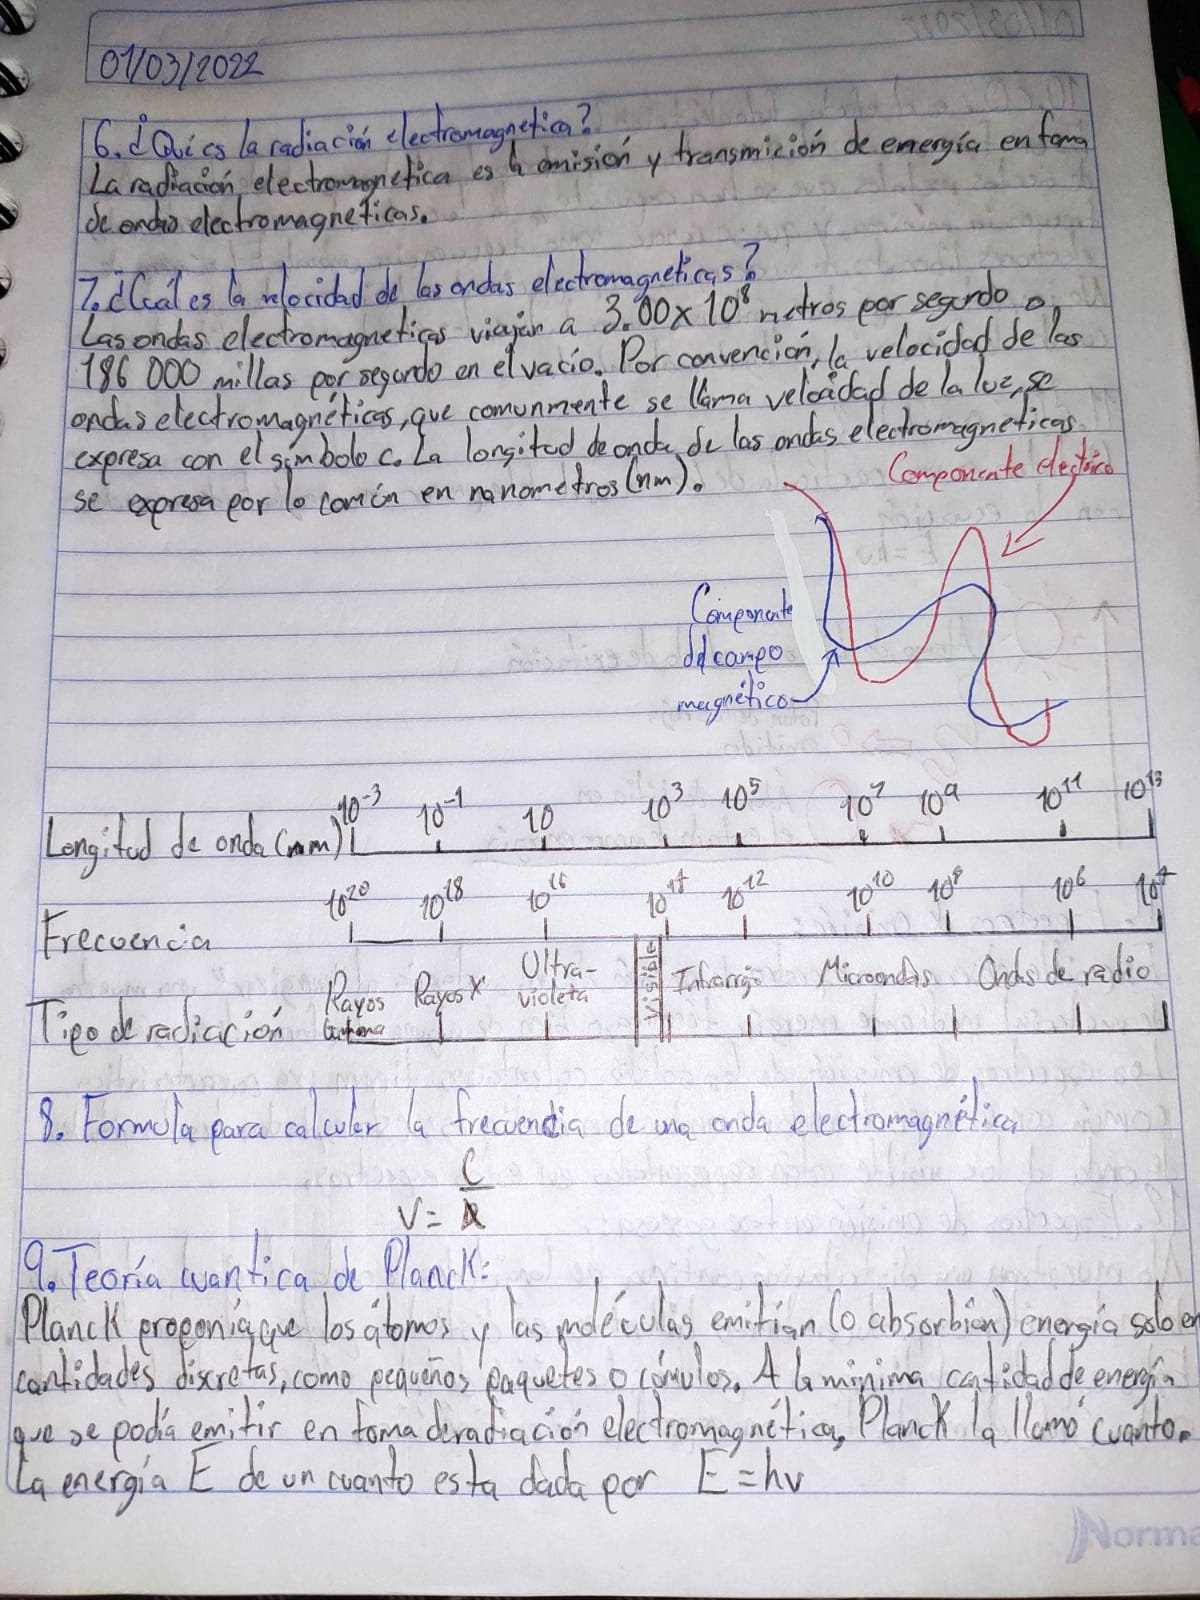 01/03/2022
6. ¿Qué es la radiación electromagnetica?
La radiación electromagnetica es la emisión y transmición de energía en foma
de ondas electromagneticas.
7. ¿Cuál es la velocidad de las ondas electromagneticas?
Las ondas electromagneticas viajan a 3.00x10⁸ metros por segundo o
186 000 millas por segundo en el vacío. Por convención, la velocidad de las
ondas electromagnéticas, que comunmente se llama velocidad de la luz, se
expresa con el símbolo c. La longitud de onda de las ondas electromagneticas
se expresa por lo común en nanometros (nm).
Componente electrico
Componente
del campo
magnético
10⁻³ 10⁻¹ 10 10³ 10⁵ 10⁷ 10⁹ 10¹¹ 10¹³
Longitud de onda (nm)
10²⁰ 10¹⁸ 10¹⁶ 10¹⁴ 10¹² 10¹⁰ 10⁸ 10⁶ 10⁴
Frecuencia
Rayos Gamma Rayos X Ultra-violeta Visible Infarrojo Microondas Ondas de radio
Tipo de radiación
8. Formula para calcular la frecuencia de una onda electromagnética
V = C/λ
9. Teoría cuantica de Planck:
Planck proponía que los átomos y las moléculas emitían (o absorbían) energía solo en
cantidades discretas, como pequeños paquetes o cúmulos. A la minima cantidad de energía
que se podía emitir en foma de radiación electromagnética, Planck la llamó cuanto.
La energía E de un cuanto esta dada por E = hv
Norma